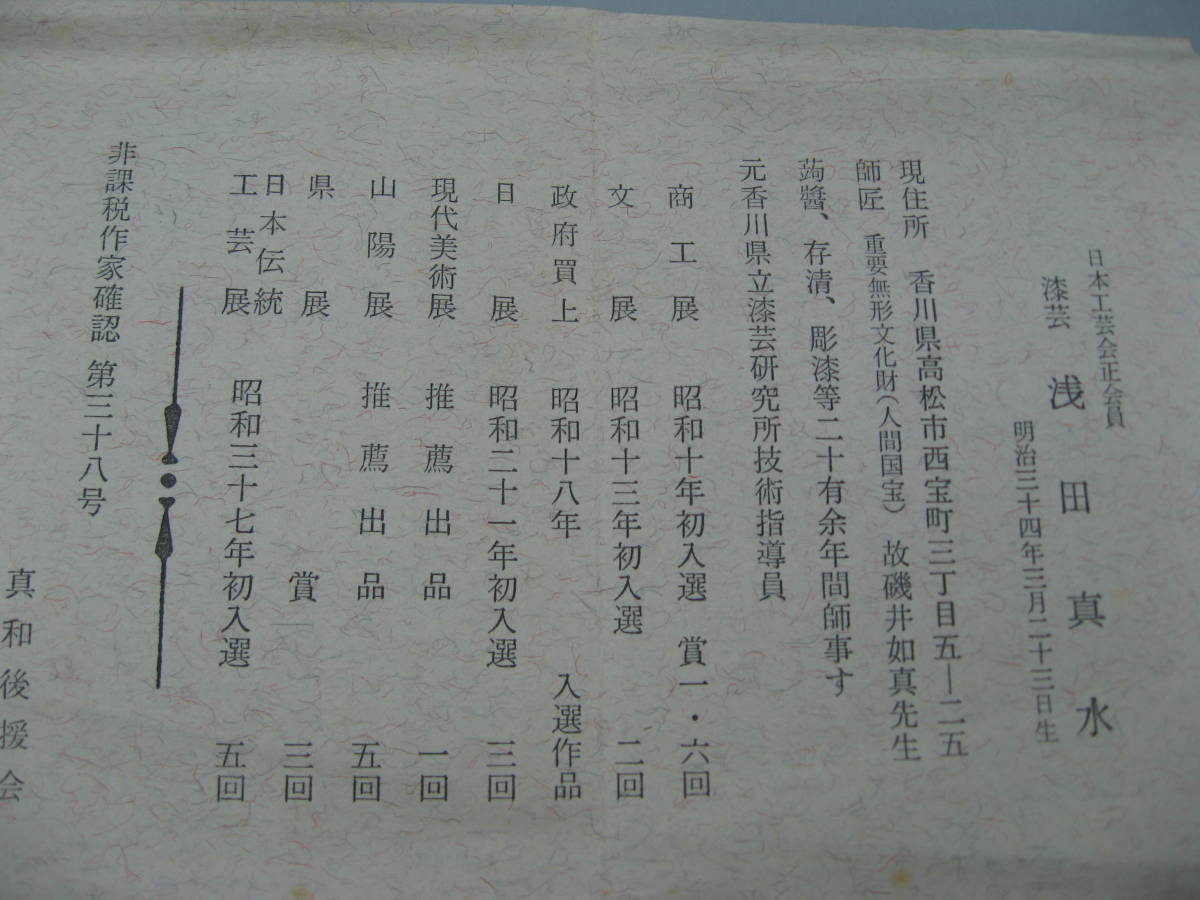 日本工芸会正会員
漆芸 浅田真水
明治三十四年三月二十三日生
現住所 香川県高松市西宝町三丁目五―二五
師匠 重要無形文化財(人間国宝) 故磯井如真先生
蒟醬、存清、彫漆等二十有余年間師事す
元香川県立漆芸研究所技術指導員
商工展 昭和十年初入選 賞一・六回
文展 昭和十三年初入選 二回
政府買上 昭和十八年 入選作品
日展 昭和二十一年初入選 三回
現代美術展 推薦出品 一回
山陽展 推薦出品 五回
県展 賞一 三回
日本伝統工芸展 昭和三十七年初入選 五回
非課税作家確認 第三十八号
真和後援会